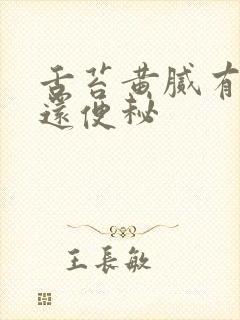 舌苔黄腻有
還便秘
王長敏